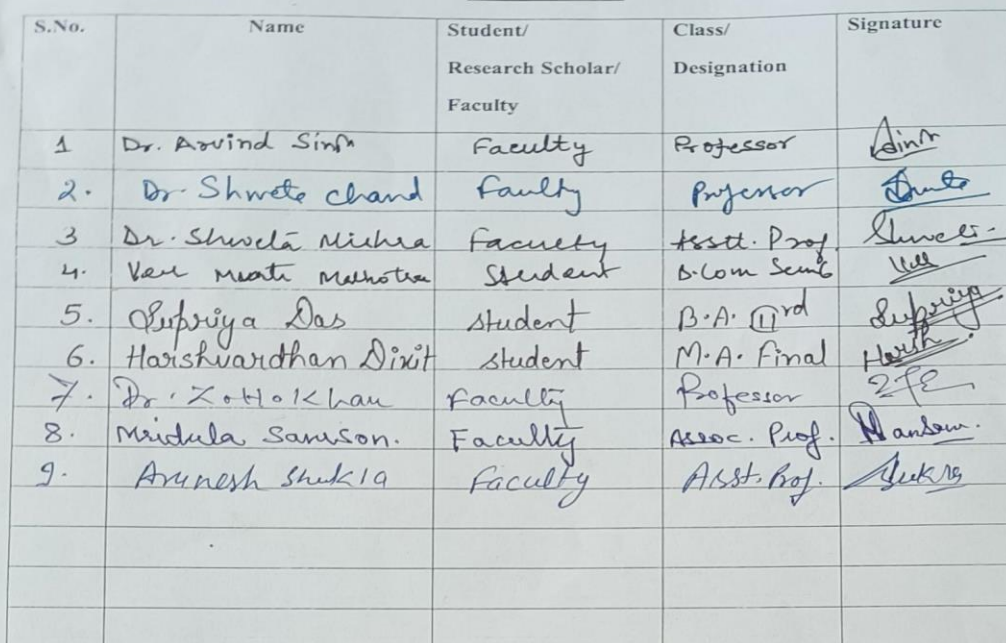 S.No. Name Student/ Class/ Signature
Research Scholar/ Designation
Faculty
1 Dr. Arvind Sinh Faculty Professor
2. Dr. Shweta Chand Faulty Professor
3 Dr. Shweta Mishra Faculty Asstt. Prof. Shweta.
4. Malhotra Student B.Com Sem6
5. Supriya Das student B.A. IIrd Supriya
6. Harshvardhan Dixit student M.A. Final Harsh.
7. Dr. Z.H.Khan Faculty Professor
8. Mridula Samson. Faculty Assoc. Prof.
9. Arunesh Shukla Faculty Asst. Prof.